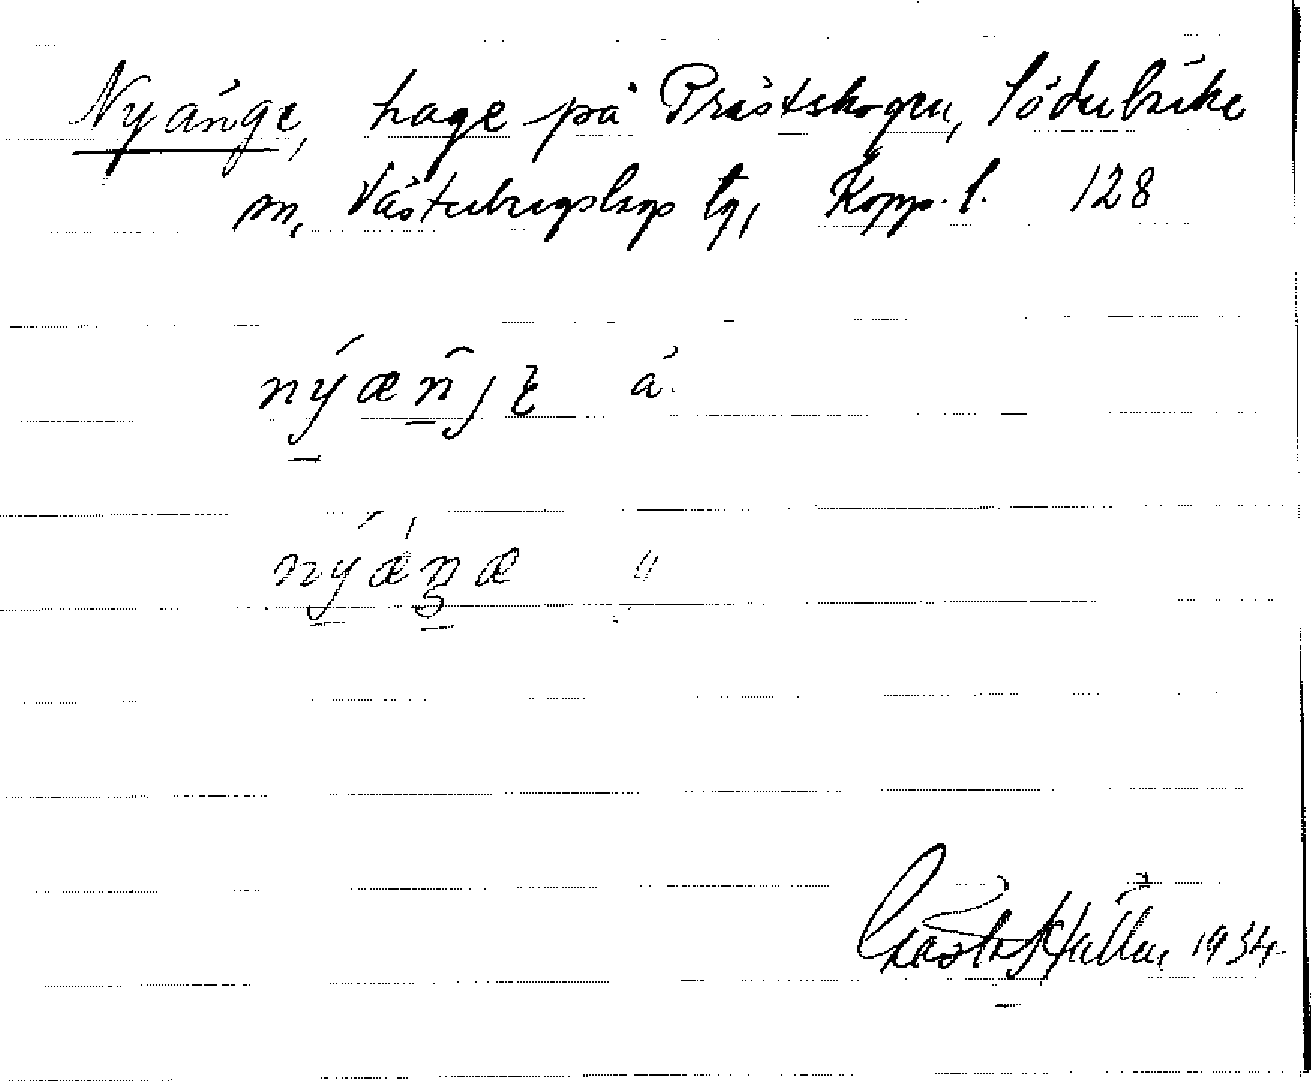 Nyänge, hage på Prästskogen, Söderbärke
sn, Västerbergslags tg, Kopp. l. 128
nýæñję ä.
nýǽŋæ "
Hållen, 1934